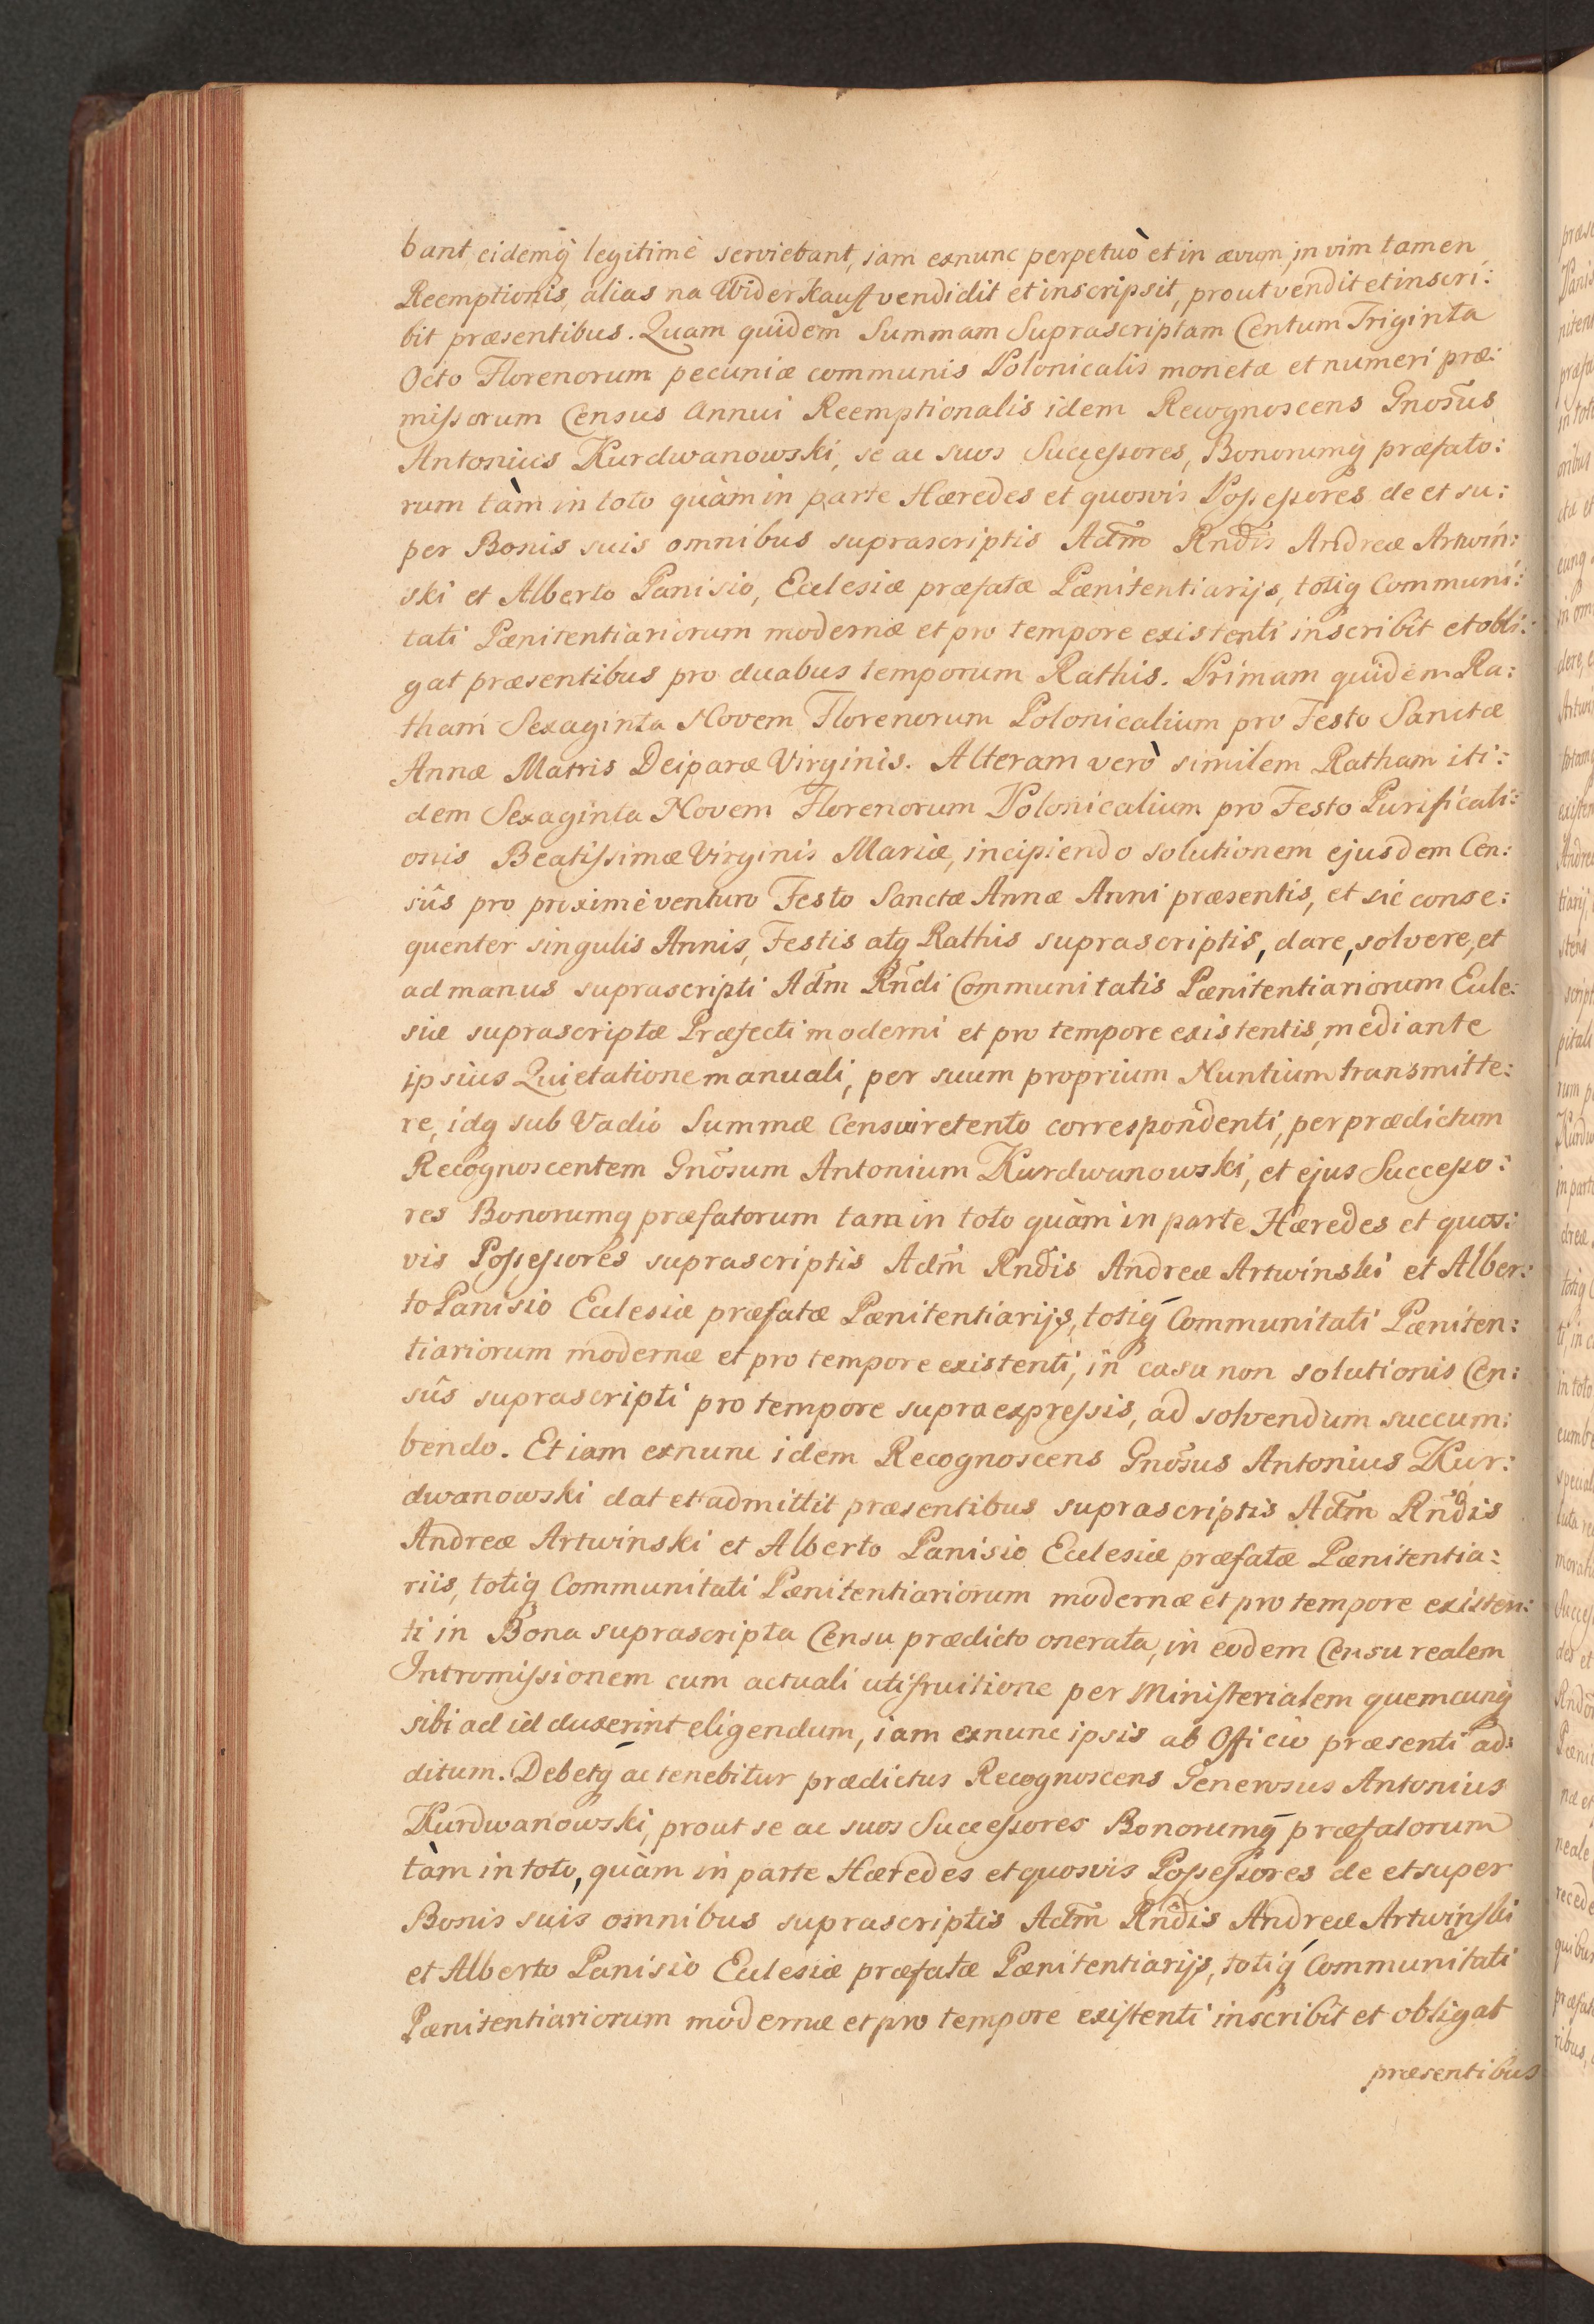 bant eidemq̀ legitimè serviebant, iam exnunc perpetuò et in ævum, in vim tamen
Reemptionis, alias na Widerkauff vendidit et inscripsit, prout vendit et inscri:
bit præsentibus. Quam quidem Summam Suprascriptam Centum Triginta
Octo Florenorum pecuniæ communis Polonicalis monetæ et numeri præ:
missorum Census Annui Reemptionalis idem Recognoscens Gnos̃us
Antonius Kurdwanowski, se ac suos Successores, Bonorumq́ præfato:
rum tàm in toto quàm in parte Hæredes et quosvis Possessores de et su:
per Bonis suis omnibus suprascriptis Adm̃ Rnd̃is Andreæ Artwin:
ski et Alberto Panisio, Ecclesiæ præfatæ Pænitentiarijs, totiq Communi:
tati Pænitentiariorum modernæ et pro tempore existenti inscribit et obli:
gat præsentibus pro duabus temporum Rathis. Primam quidem Ra:
tham Sexaginta Novem Florenorum Polonicalium pro Festo Sanctæ
Annæ Matris Deiparæ Virginis. Alteram verò similem Ratham iti:
dem Sexaginta Novem Florenorum Polonicalium pro Festo Purificati:
onis Beatissimæ Virginis Mariæ, incipiendo solutionem ejusdem Cen:
sûs pro proximè venturo Festo Sanctæ Annæ Anni præsentis, et sic conse:
quenter singulis Annis, Festis atq Rathis suprascriptis, dare, solvere, et
ad manus suprascripti Adm̃ Rñdi Communitatis Pænitentiariorum Eccle:
siæ suprascriptæ Præfecti moderni et pro tempore existentis, mediante
ipsius Quietatione manuali, per suum proprium Nuntium transmitte:
re, idq sub Vadio Summæ Censui retento correspondenti, per prædictum
Recognoscentem Gnõsum Antonium Kurdwanowski, et ejus Successo:
res Bonorumq præfatorum tam in toto quàm in parte Hæredes et quos:
vis Possessores suprascriptis Adm̃ Rnd̃is Andreæ Artwinski et Alber:
to Panisio Ecclesiæ præfatæ Pænitentiarijs, totiq́ Communitati Pæniten:
tiariorum modernæ et pro tempore existenti, in casu non solutionis Cen:
sûs suprascripti pro tempore supra expressis, ad solvendum succum:
bendo. Et iam exnunc idem Recognoscens Gnos̃us Antonius Kur:
dwanowski dat et admittit præsentibus suprascriptis Adm̃ Rñdis
Andreæ Artwinski et Alberto Panisio Ecclesiæ præfatæ Pænitentia:
riis, totiq Communitati Pænitentiariorum modernæ et pro tempore existen:
ti in Bona suprascripta Censu prædicto onerata, in eodem Censu realem
Intromissionem cum actuali utifruitione per Ministerialem quemcunq́
sibi ad id duxerint eligendum, iam exnunc ipsis ab Officio præsenti ad:
ditum. Debetq́ ac tenebitur prædictus Recognoscens Generosus Antonius
Kurdwanowski, prout se ac suos Successores Bonorumq́ præfatorum
tàm in toto, quàm in parte Hæredes et quosvis Possessores de et super
Bonis suis omnibus suprascriptis Adm̃ Rñdis Andreæ Artwinski
et Alberto Panisio Ecclesiæ præfatæ Pænitentiarijs, totiq́ Communitati
Pænitentiariorum modernæ et pro tempore existenti inscribit et obligat
præsentibus